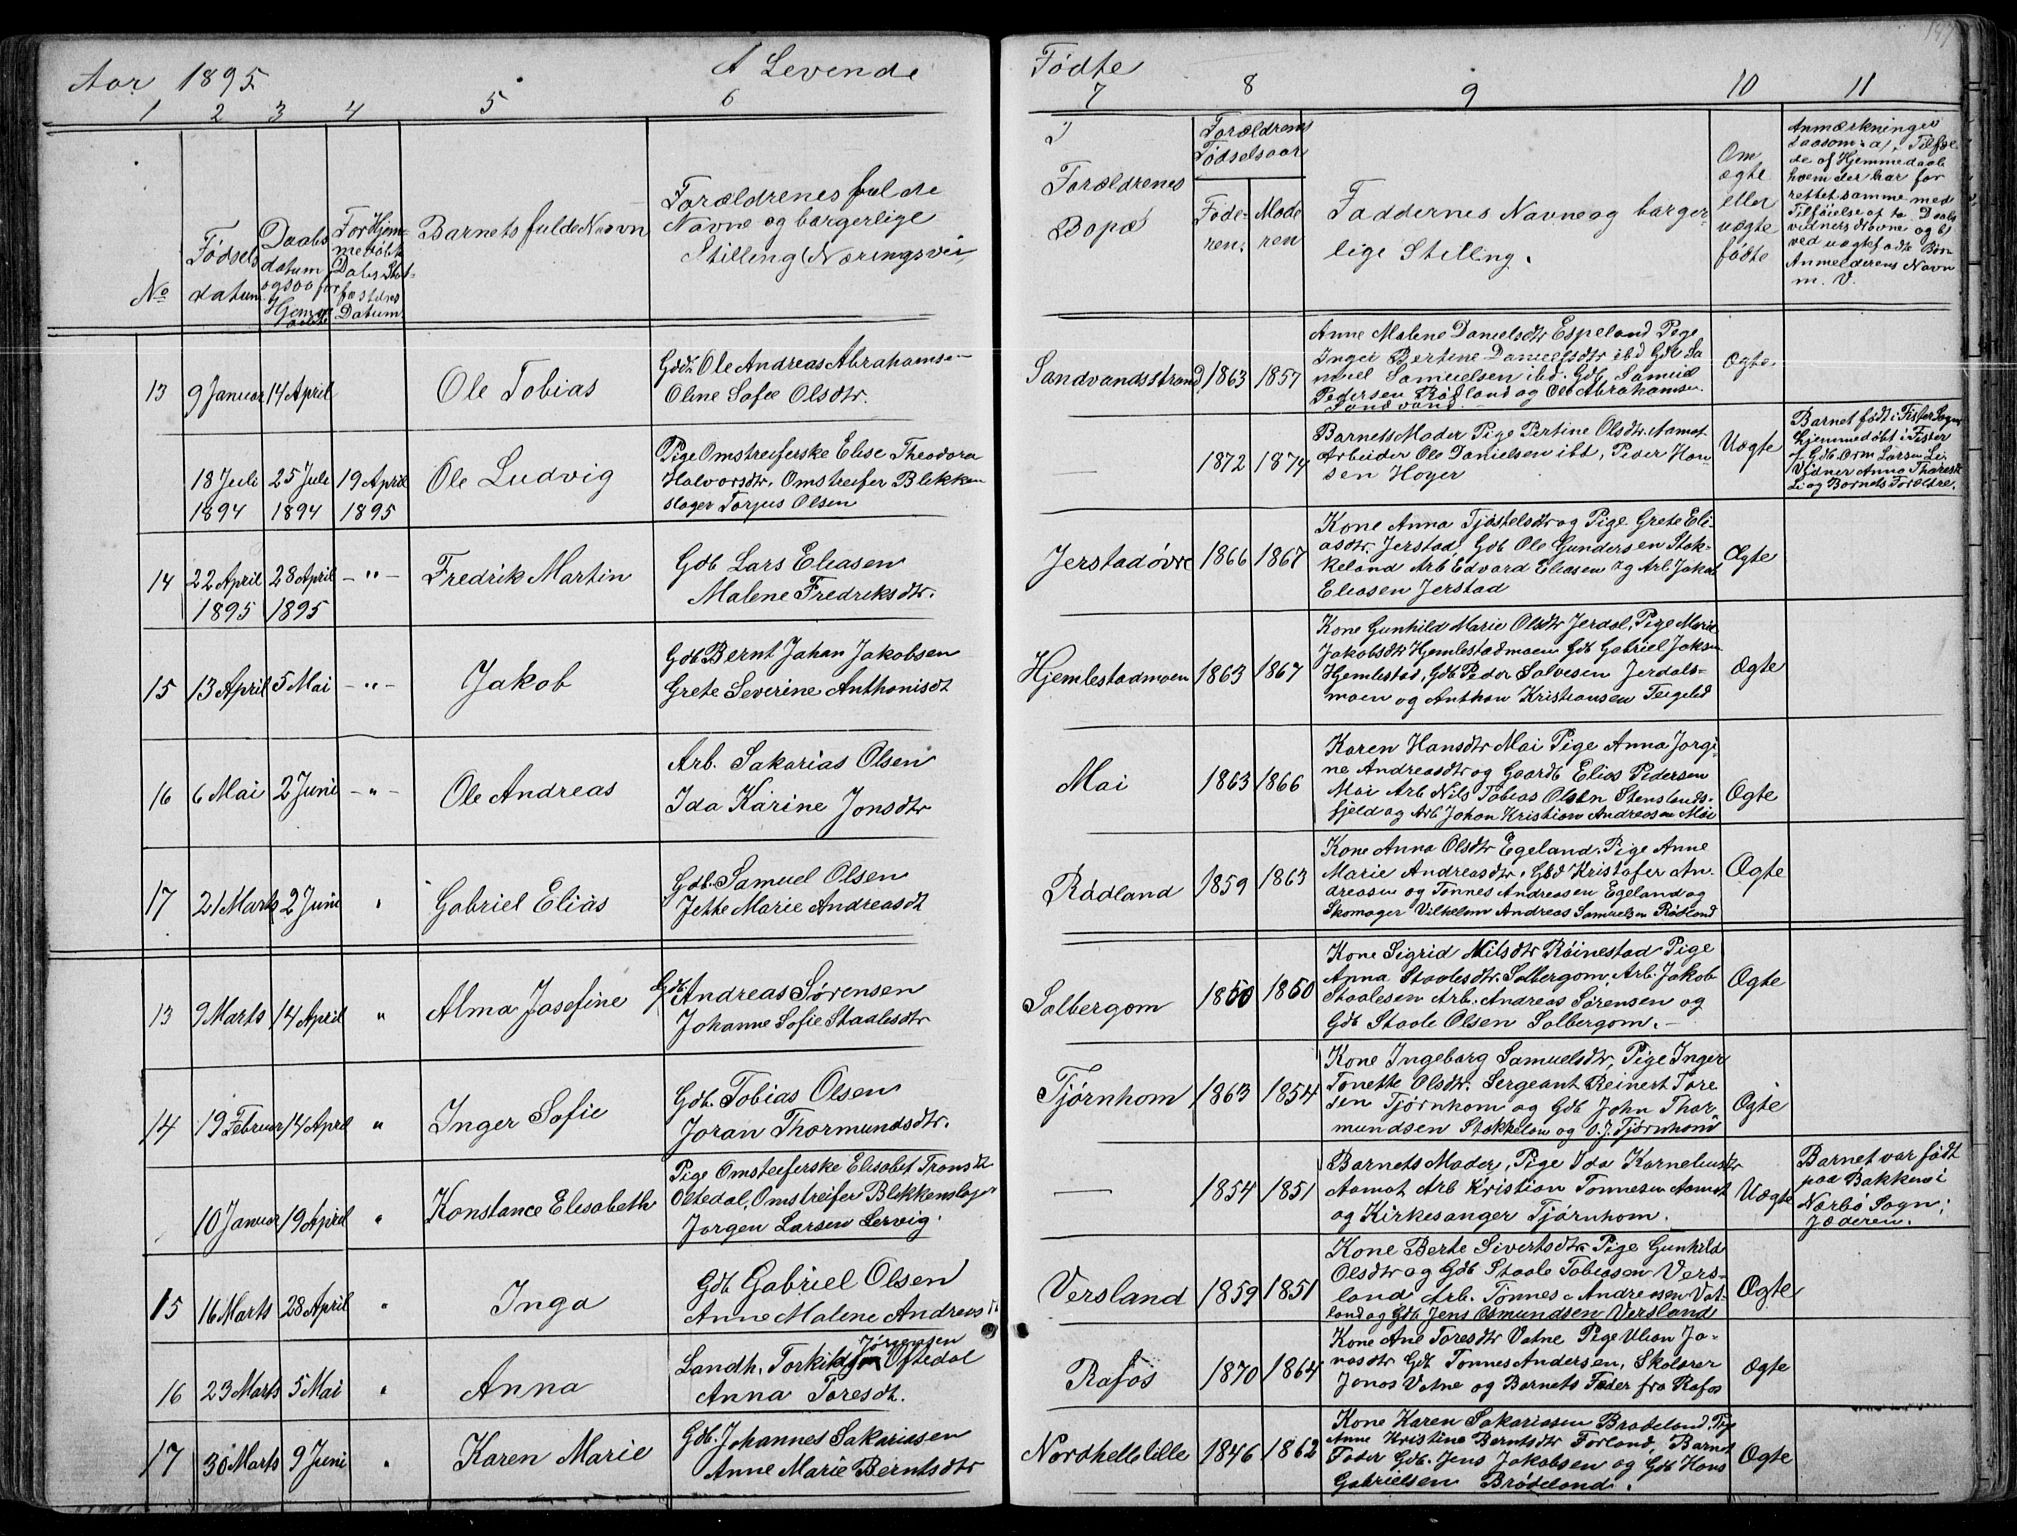 Aar 1895
A Levende
Fødte
1 2 3 4 5 6 7 8 9 10 11
No
Fødsels
datum
Daabs
datum
ogsaa for
Hjemme
For Hjem-
medøbte
Datum
Barnets fulde Navn
Forældrenes fulde
Navne og borgerlige
Stilling (Næringsvei
Forældrenes
Bopæ
Forældrenes
Fødselsaar
Fade-
ren.
Mode
ren
Faddernes Navne og borger-
lige Stilling.
Om
ægte
eller
uægte
fødte
Anmærkninger
saasom: a) Tilfæl-
de af Hjemmedaab
hvem der har for
rettet samme med
Tilføielse af to Daabs
vidners Navne og b)
ved uægte fødte Børn
Anmelderens Navn
m. V.
13 9 Januar 14 April Ole Tobias
Gdb. Ole Andreas Abrahamsen
Oline Sofie Olsdtr.
Sandvandsstrand 1863 1857
Anne Malene Danielsdtr Espeland Pige
Inger Bertine Danielsdtr ibd Gdb Sa
muel Samuelsen ibd. Gdb Samuel
Pedersen Rødland og Ole Abrahamsen
Sandvand.
Ægte.
18 Juli 25 Juli 19 April
1894 1894 1895
Ole Ludvig
Pige Omstreiferske Elise Theodora
Halvorsdtr, Omstreifer Blikken
slager Torjus Olsen
1872 1874
Barnets Moder Pige Pertine Olsdtr Aamot
Arbeider Ole Danielsen ibd, Peder Han-
sen Hoyer
Uægte
Barnet født i Fister Sogn
hjemmedøbt i Fister
af Gdb. Orm Larsen Li
Vidner Anna
Li og Barnets Forældre.
14 22 April 28 April -"- Fredrik Martin
1895 1895
Gdb Lars Eliasen
Malene Fredriksdtr.
Jerstadøvre 1866 1867
Kone Anna Tjøstelsdtr og Pige Grete Eli-
asdtr. Jerstad, Gdb Ole Gundersen Stok-
keland Arb Edvard Eliasen og Arb Jakob
Eliasen Jerstad
Ægte
15 13 April 5 Mai -"- Jakob
Gdb Bernt Johan Jakobsen
Grete Severine Anthonisdt
Hjemlestadmoen 1863 1867
Kone Gunhild Marie Olsdtr Jerdal, Pige Marie
Jakobsdtr Hjemlestadmoen Gdb Gabriel Jaksn
Hjemlestad, Gdb Peder Salvesen Jerdals-
moen og Anthon Kristiansen Teigeld
Ægte
16 6 Mai 2 Juni -"- Ole Andreas
Arb. Sakarias Olsen
Ida Karine Jonsdtr
Mai 1863 1866
Karen Hansdtr Mai Pige Anna Jorgi-
ne Andreasdtr og Gaardb Elias Pedersen
Mai Arb Nils Tobias Olsen Stenslands-
fjeld og Arb Johan Kristian Andreasen Mai
Ægte
17 21 Marts 2 Juni " Gabriel Elias
Gdb. Samuel Olsen
Jette Marie Andreasdt
Rødland 1859 1863
Kone Anna Olsdtr Egeland. Pige Anne
Marie Andreasdtr. Gbd Kristofer An-
dreasen og Tønnes Andreasen Egeland og
Skomager Vilhelm Andreas Samuelsen Rødland
Ægte
13 9 Marts 14 April " Alma Josefine
Gdb. Andreas Sørensen
Johanne Sofie Staalesdtr
Solbergom 1850 1850
Kone Sigrid Nilsdtr Røinestad Pige
Anna Staalesdtr. Solbergom, Arb. Jakob
Staalesen Arb. Andreas Sørensen og
Gdb Staale Olsen Solbergom.
Ægte
14 19 Februar 14 April " Inger Sofie
Gdb. Tobias Olsen
Joran Thormundsdtr.
Tjørnhom 1863 1854
Kone Ingeborg Samuelsdtr, Pige Inger
Tonette Olsdtr. Sergeant Reinert Tore
sen Tjørnhom og Gdb John Thor-
mundsen Stakkelan og O. J. Tjørnhom
Ægte
10 Januar 19 April " Konstance Elisabeth
Pige Omstreiferske Elisabet Tronsdt
Oltedal, Omstreifer Blikkenslager
Jorgen Larsen Lervig.
1854 1851
Barnets Moder, Pige Ida Korneliusdtr
Aamot Arb Kristian Tonnesen Aamot
og Kirkesanger Tjørnhom.
Uægte
Barnet var født
paa Bakken i
Nærbø Sogn,
Jæderen.
15 16 Marts 28 April " Inga
Gdb Gabriel Olsen
Anne Malene Andreasdt
Versland 1859 1851
Kone Berte Sivertsdtr Pige Gunhild
Olsdtr og Gdb Staale Tobiasen Vers-
land Arb. Tønnes Andreasen Vat-
land og Gdb Jens Osmundsen Versland
Ægte
16 23 Marts 5 Mai " Anna
Jørgensen
Landh. Torkild Oftedal
Anna Toresdt.
Rafos 1870 1864
Kone Ane Toresdtr Vatne Pige Jo-
nasdtr Gdb Tonnes Andersen, Skolærer
Jonas Vatne og Barnets Fader fra Rafos
Ægte
17 30 Marts 9 Juni " Karen Marie
Gdb. Johannes Sakariasen
Anne Marie Berntsdtr
Nordhellelille 1846 1862
Kone Karen Sakariasen Brødeland. Pig
Anne Kristine Berntsdtr Førland, Barnets
Fader Gdb. Jens Jakobsen og Gdb Hans
Gabrielsen Brødeland.
Ægte